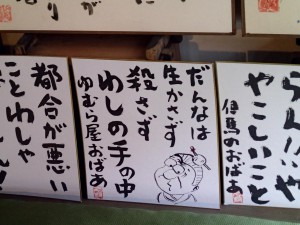 らん!!や
やこしいこと
但馬のおばあ
だんなは
生かさず
殺さず
わしの手の中
ゆむら屋おばあ
都合が悪い
ことわしゃ